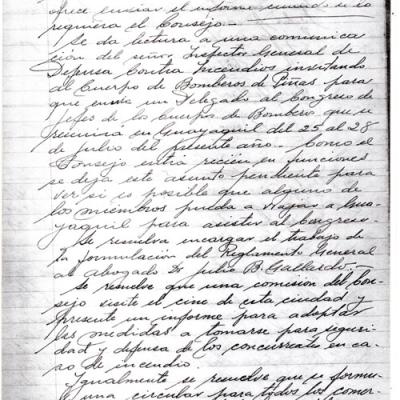 ofrece enviar el informe cuando lo
requiera el Consejo.-
Se da lectura a una comunica
ción del señor Inspector General de
Defensa Contra Incendios invitando
al Cuerpo de Bomberos de Piñas para
que envíe un Delegado al Congreso de
Jefes de los Cuerpos de Bomberos que se
reunirá en Guayaquil del 25 al 28
de julio del presente año. Como el
Consejo entra recién en funciones
se deja este asunto pendiente para
ver si es posible que alguno de
los miembros pueda viajar a Gua-
yaquil para asistir al Congreso.
Se resuelve encargar el trabajo de
la formulación del Reglamento General
al abogado Dr Julio B. Gallardo.-
Se resuelve que una comisión del Con-
sejo visite el cine de esta ciudad y
presente un informe para adoptar
las medidas a tomarse para seguri-
dad y defensa de los concurrentes en ca-
so de incendio.
Igualmente se resuelve que se formu-
una circular para todos los comer-